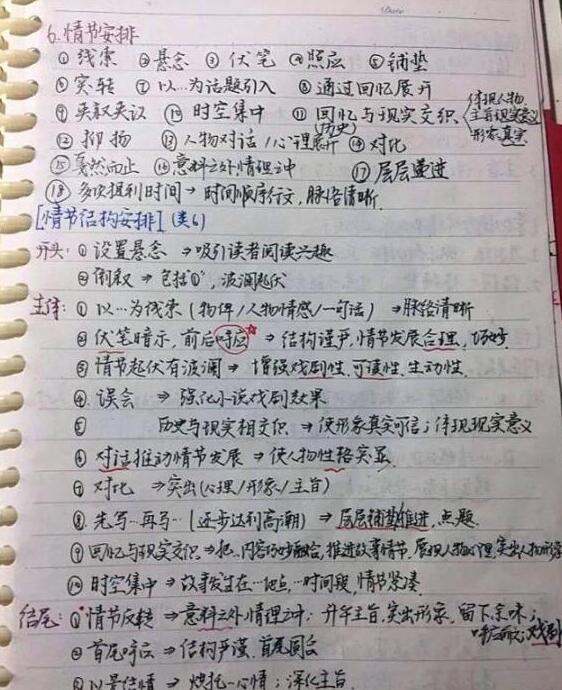 6.情节安排
①线索 ②悬念 ③伏笔 ④照应 ⑤铺垫
⑥突转 ⑦以…为话题引入 ⑧通过回忆展开
⑨夹叙夹议 ⑩时空集中 ⑪回忆与现实交织 体现人物
(历史) 主旨现实意义
⑫抑扬 ⑬人物对话/心理展开 ⑭对比 形象真实
⑮戛然而止 ⑯意料之外情理之中 ⑰层层递进
⑱多次提到时间→时间顺序行文,脉络清晰.
[情节结构安排](类6)
开头:①设置悬念→吸引读者阅读兴趣
②倒叙→包括"①",波澜起伏
主体:①以…为线索(物件/人物情感/一句话)→脉络清晰
②伏笔暗示,前后呼应→结构谨严,情节发展合理,巧妙
③情节起伏有波澜→增强戏剧性.可读性.生动性.
④误会→强化小说戏剧效果
⑤ 历史与现实相交织→使形象真实可信;体现现实意义
⑥对话推动情节发展→使人物性格突显.
⑦对比→突出(心理/形象/主旨)
⑧先写…再写…(逐步达到高潮)→层层铺垫推进,点题.
⑨回忆与现实交织→把..内容巧妙融合,推进故事情节,展现人物心理,突出人物形象
⑩时空集中→故事发生在…地点,…时间段,情节紧凑.
结尾:①情节反转→意料之外,情理之中;升华主旨,突出形象,留下余味;
呼应前文;戏剧
②首尾呼应→结构严谨,首尾圆合
③以景结情→烘托…心情;深化主旨.